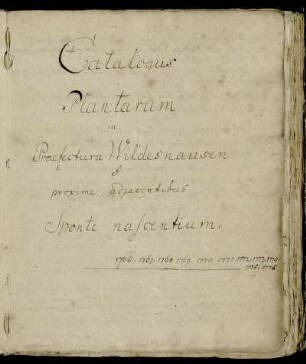 Catalogus
Plantarum
in
Praefectura Wildeshausen
&
proxime adjacentibus
Sponte nascentium.
1766. 1767. 1768. 1769. 1770. 1771. 1772. 1773. 1774.
1775. 1776.